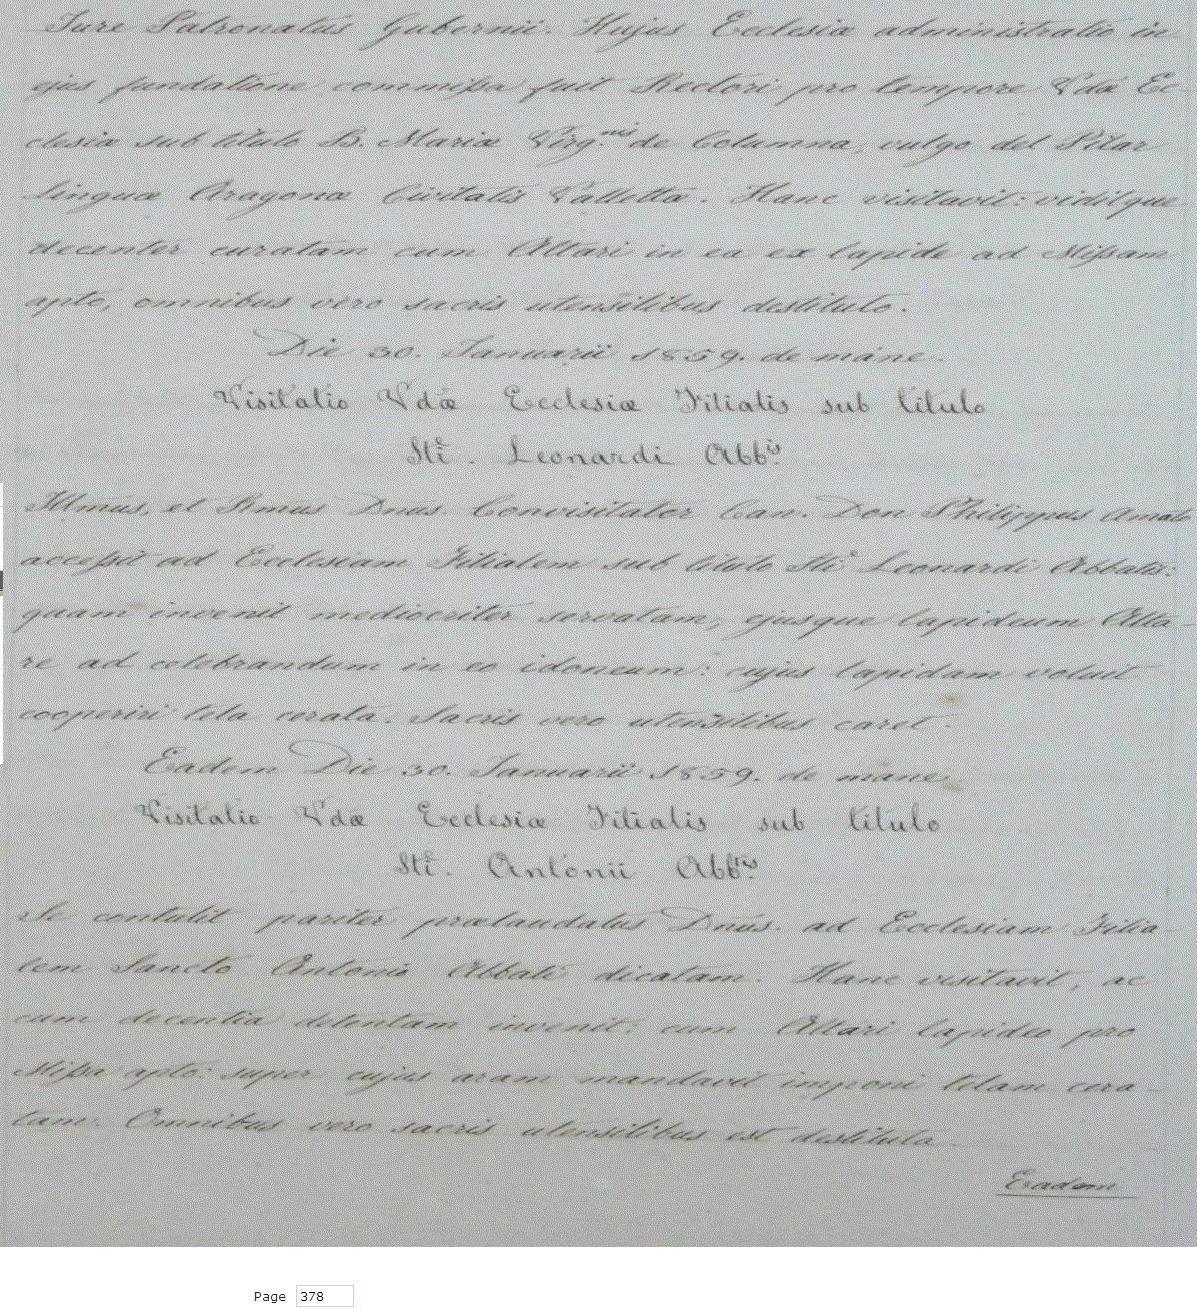 Jure Patronatus Gubernii. Hujus Ecclesiæ administratio in
ejus fundatione commissa fuit Rectori pro tempore Vdæ Ec-
clesiæ sub titulo B. Mariæ Virg.nis de Columna, vulgo del Pilar
linguæ Aragonæ Civitatis Vallettæ. Hanc visitavit: viditque
decenter curatam cum Altari in ea ex lapide ad Missam
apto, omnibus vero sacris utensilibus destituto.
Die 30. Januarii 1859. de mane.
Visitatio Vdæ Ecclesiæ Filialis sub titulo
Sti. Leonardi Abb.is
Illmus, et Rmus Dnus. Convisitator Can. Don Philippus Amato
accessit ad Ecclesiam Filialem sub titulo Sti. Leonardi Abbatis:
quam invenit mediocriter servatam, ejusque lapideum Alta-
re ad celebrandum in eo idoneum: cujus lapidam voluit
cooperiri tela cerata. Sacris vero utensilibus caret.
Eadem Die 30. Januarii 1859. de mane.
Visitatio Vdæ Ecclesiæ Filialis sub titulo
Sti. Antonii Abb.tis
Se contulit pariter prælaudatus Dnus. ad Ecclesiam Filia-
lem Sancto Antonio Abbati dicatam. Hanc visitavit, ac
cum decentia detentam invenit: cum Altari lapideo pro
Missa apto: super cujus aram mandavit imponi telam cera-
tam. Omnibus vero sacris utensilibus est destituta
Eadem
Page 378